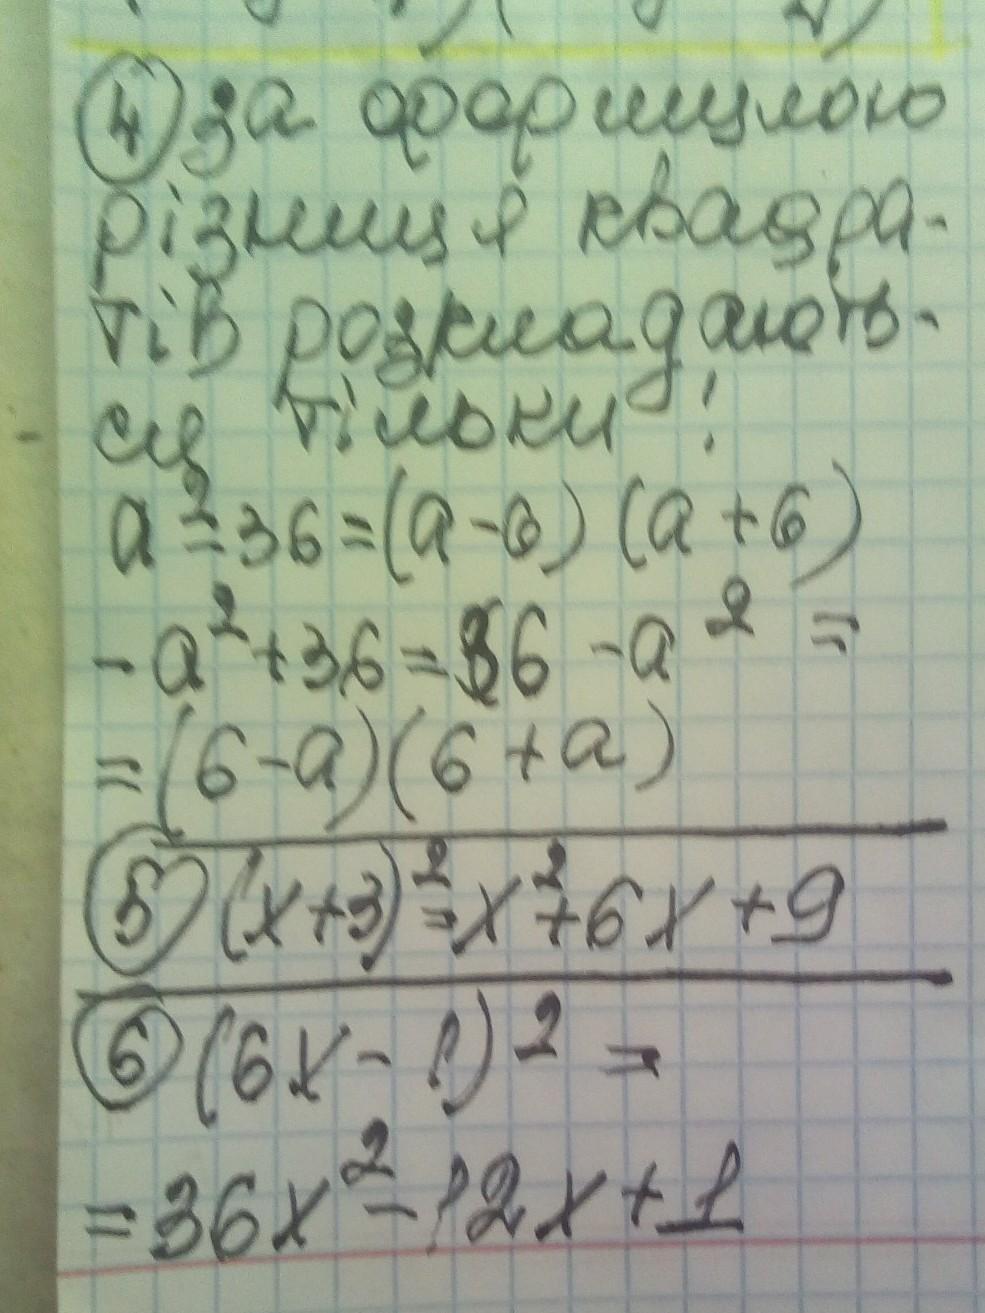 ④ за формулою
різниця квадра-
тів розкладають-
ся тільки:
a²-36=(a-6)(a+6)
-a²+36=36-a²=
=(6-a)(6+a)
⑤ (x+3)²=x²+6x+9
⑥ (6x-1)²=
=36x²-12x+1